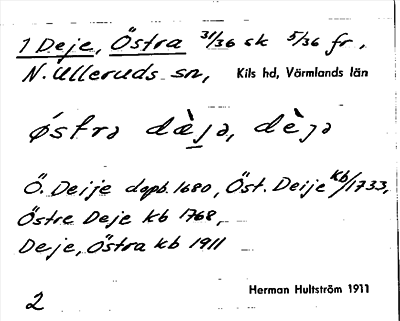 1 Deje, Östra 31/36 sk 5/36 fr.
N. Ulleruds sn, Kils hd, Värmlands län
östrə dæ̀jə, dèjə
Ö. Deije dopb. 1680, Öst. Deije Kb/1733,
Östre Deje kb 1768,
Deje, Östra kb 1911
Herman Hultström 1911
2